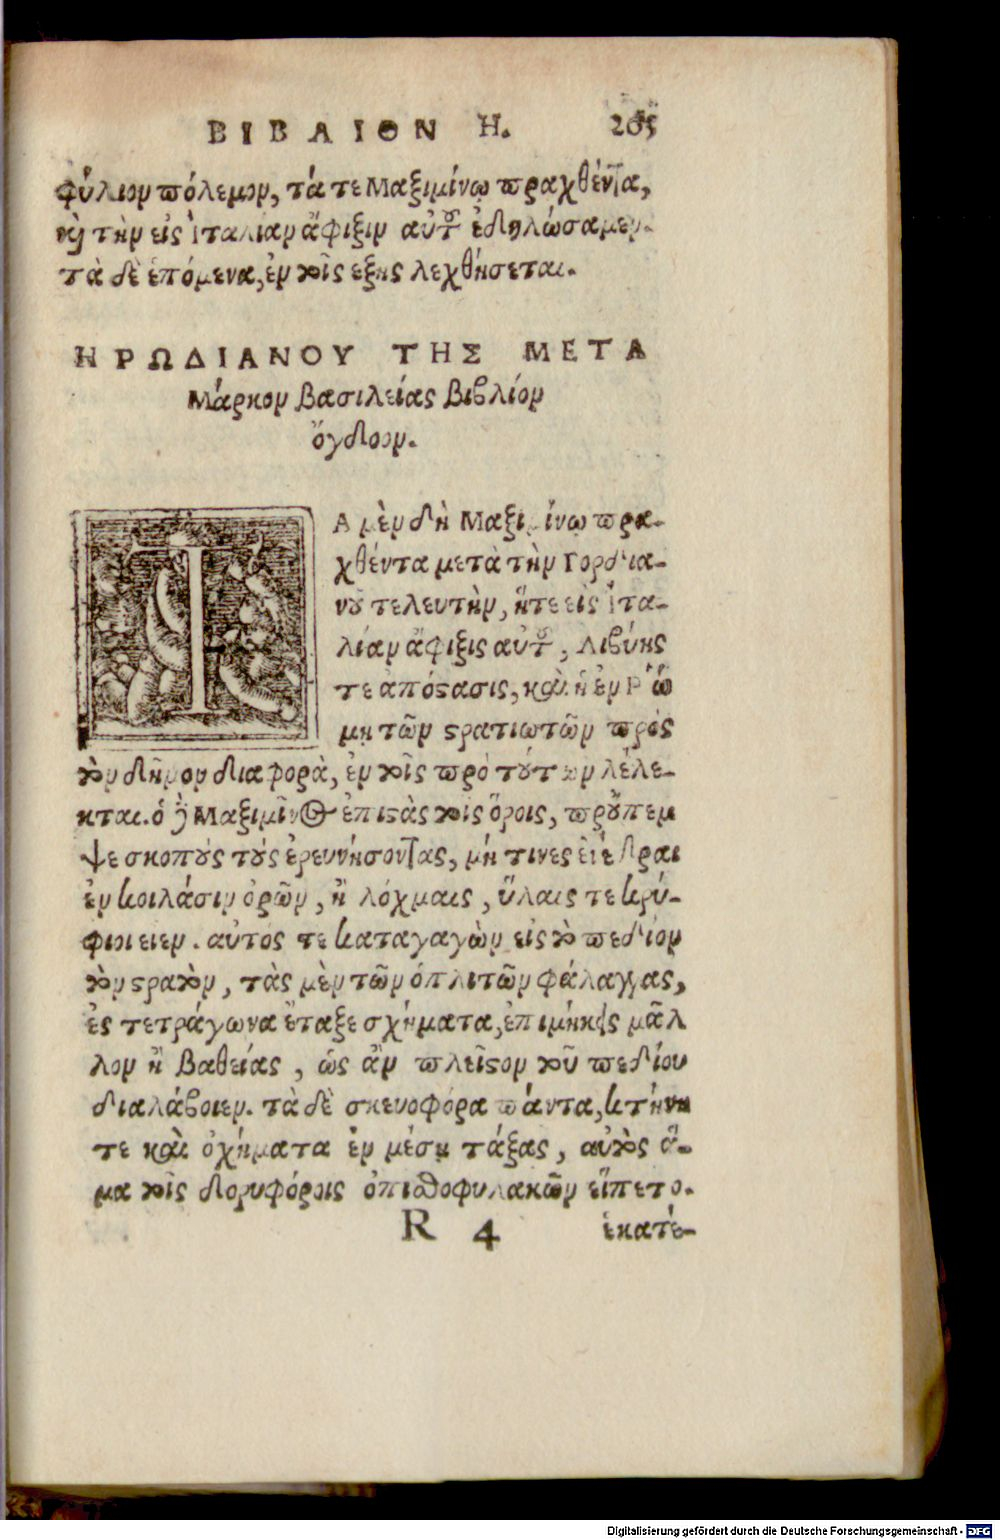 ΒΙΒΛΙΟΝ Η. 265
φύλιον πόλεμον, τά τε Μαξιμίνῳ πραχθέντα,
καὶ τὴν εἰς Ἰταλίαν ἄφιξιν αὐτοῦ ἐδηλώσαμεν.
τὰ δὲ ἑπόμενα, ἐν τοῖς εξης λεχθήσεται.
ΗΡΩΔΙΑΝΟΥ ΤΗΣ ΜΕΤΑ
Μάρκον βασιλείας βιβλίον
ὄγδοον.
ΤΑ μὲν δὴ Μαξιμίνῳ πρα-
χθέντα μετὰ τὴν Γορδια-
νοῦ τελευτὴν, ἥτε εἰς Ἰτα-
λίαν ἄφιξις αὐτοῦ, Λιβύης
τε απόστασις, καὶ ἡ ἐν Ῥώ
μῃ τῶν στρατιωτῶν πρὸς
τὸν δῆμον διαφορὰ, ἐν τοῖς πρὸ τούτων λέλε-
κται. ὁ δὲ Μαξιμῖνος ἐπιστὰς τοῖς ὅροις, προὔπεμ
ψε σκοποὺς τοὺς ἐρευνήσοντας, μή τινες ἐνέδραι
ἐν κοιλάσιν ὀρῶν, ἢ λόχμαις, ὕλαις τε κρύ-
φιοι ειεν. αὐτός τε καταγαγὼν εἰς τὸ πεδίον
τὸν στρατὸν, τὰς μὲν τῶν ὁπλιτῶν φάλαγγας,
ἐς τετράγωνα ἔταξε σχήματα, ἐπιμήκεις μᾶλ
λον ἢ βαθείας, ὡς ἂν πλεῖστον τοῦ πεδίου
διαλάβοιεν. τὰ δὲ σκευοφόρα πάντα, κτήνη
τε καὶ ὀχήματα ἐν μέσῳ τάξας, αὐτὸς ἅ-
μα τοῖς δορυφόροις ὀπισθοφυλακῶν εἵπετο.
R 4 ἑκατέ-
Digitalisierung gefördert durch die Deutsche Forschungsgemeinschaft - DFG